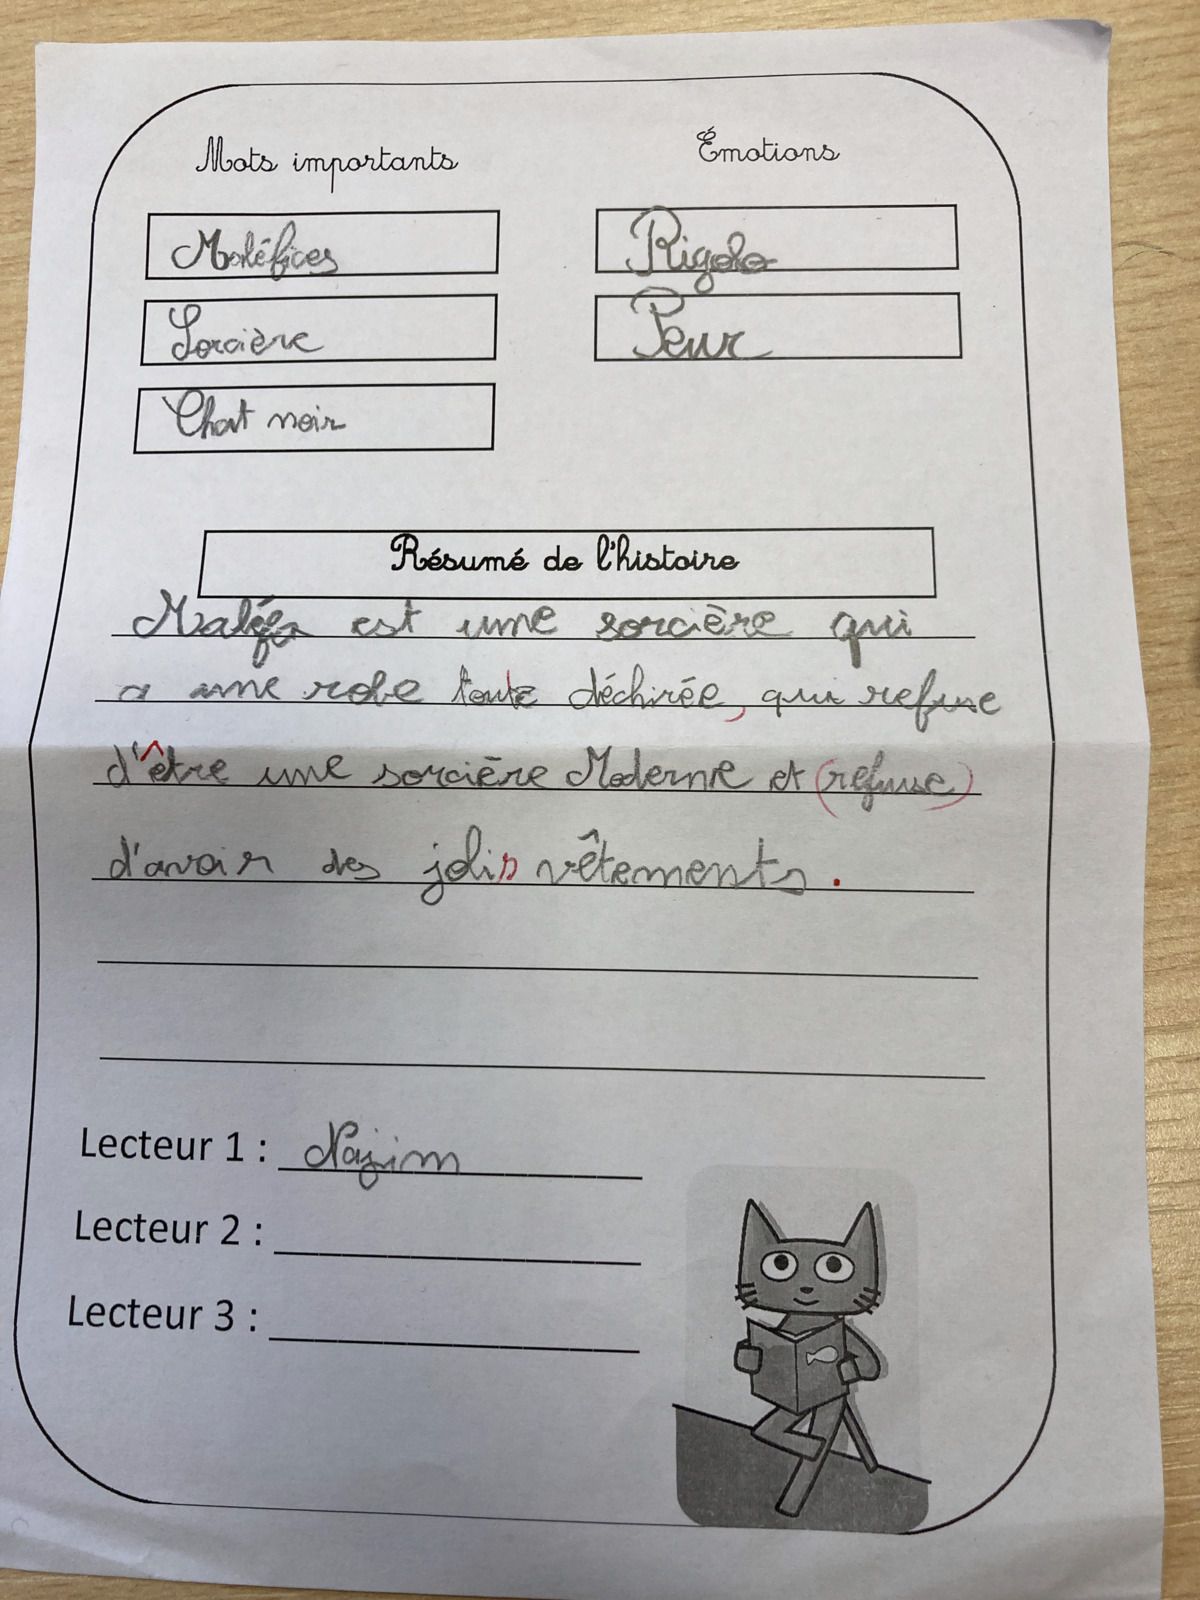 Mots importants
Émotions
Maléfices
Rigolo
Sorcière
Peur
Chat noir
Résumé de l'histoire
est une sorcière qui
a une robe toute déchirée, qui refuse
d'être une sorcière Moderne et (refuse)
d'avoir des jolis vêtements.
Lecteur 1 : Najim
Lecteur 2 :
Lecteur 3 :